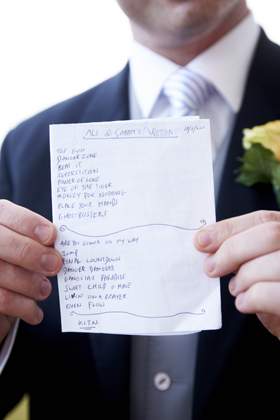 ALI & WEDDIN
TOP GUN
DANGERZONE
BEAT IT
SUPERSTITION
POWER OF LOVE
EYE OF THE TIGER
MONEY FOR NOTHING
PLACE YOUR HANDS
GHOSTBUSTERS
ARE YOU GONNA GO MY WAY
JUMP
FINAL COUNTDOWN
DANGER
GANGSTAS PARADISE
SWEET CHILD O MINE
LIVIN ON A PRAYER
EVEN FLOW
KITN